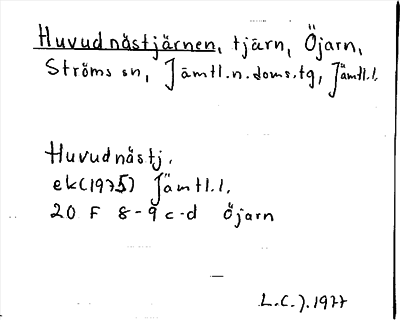 Huvudnästjärnen, tjärn, Öjarn,
Ströms sn, Jämtl.n.doms.tg, Jämtl.l.
Huvudnästj.
ek(1975) Jämtl.l.
20 F 8-9 c-d Öjarn
L.C.J. 1977